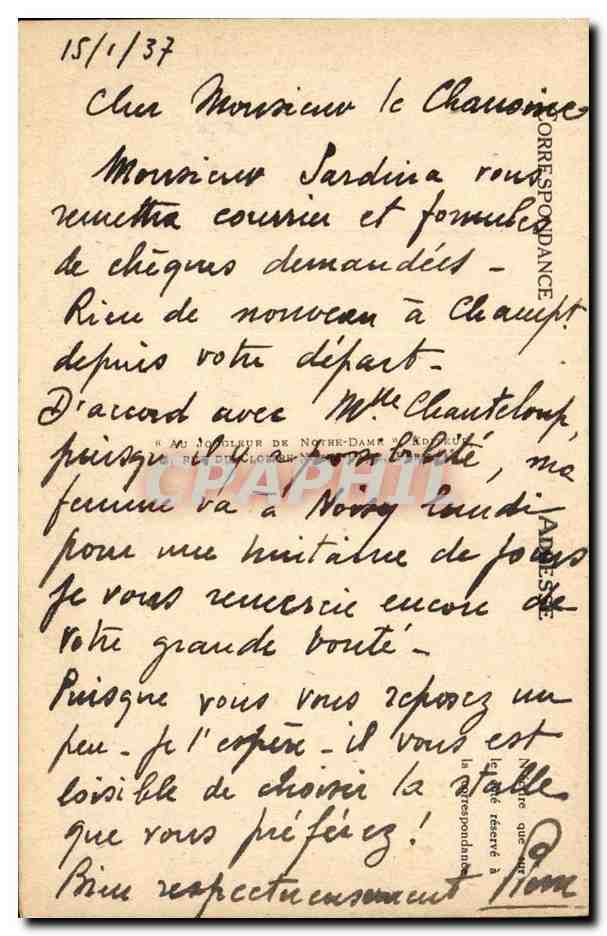 15/1/37
Cher Monsieur le Chanoine
Monsieur Sardina vous
remettra courrier et formules
de chèques demandées -
Rien de nouveau à Champt.
depuis votre départ -
D'accord avec Mlle Chanteloup,
" AU JONGLEUR DE NOTRE-DAME ", EDITEUR
puisqu'il y a possibilité, ma
CPARAMA
femme va à Noisy lundi
pour une huitaine de jours
Je vous remercie encore de
votre grande bonté -
Puisque vous vous reposez un
peu - je l'espère - il vous est
loisible de choisir la stalle
que vous préférez !
Bien respectueusement
CORRESPONDANCE
ADRESSE
N'écrire que sur
le côté réservé à
la correspondance